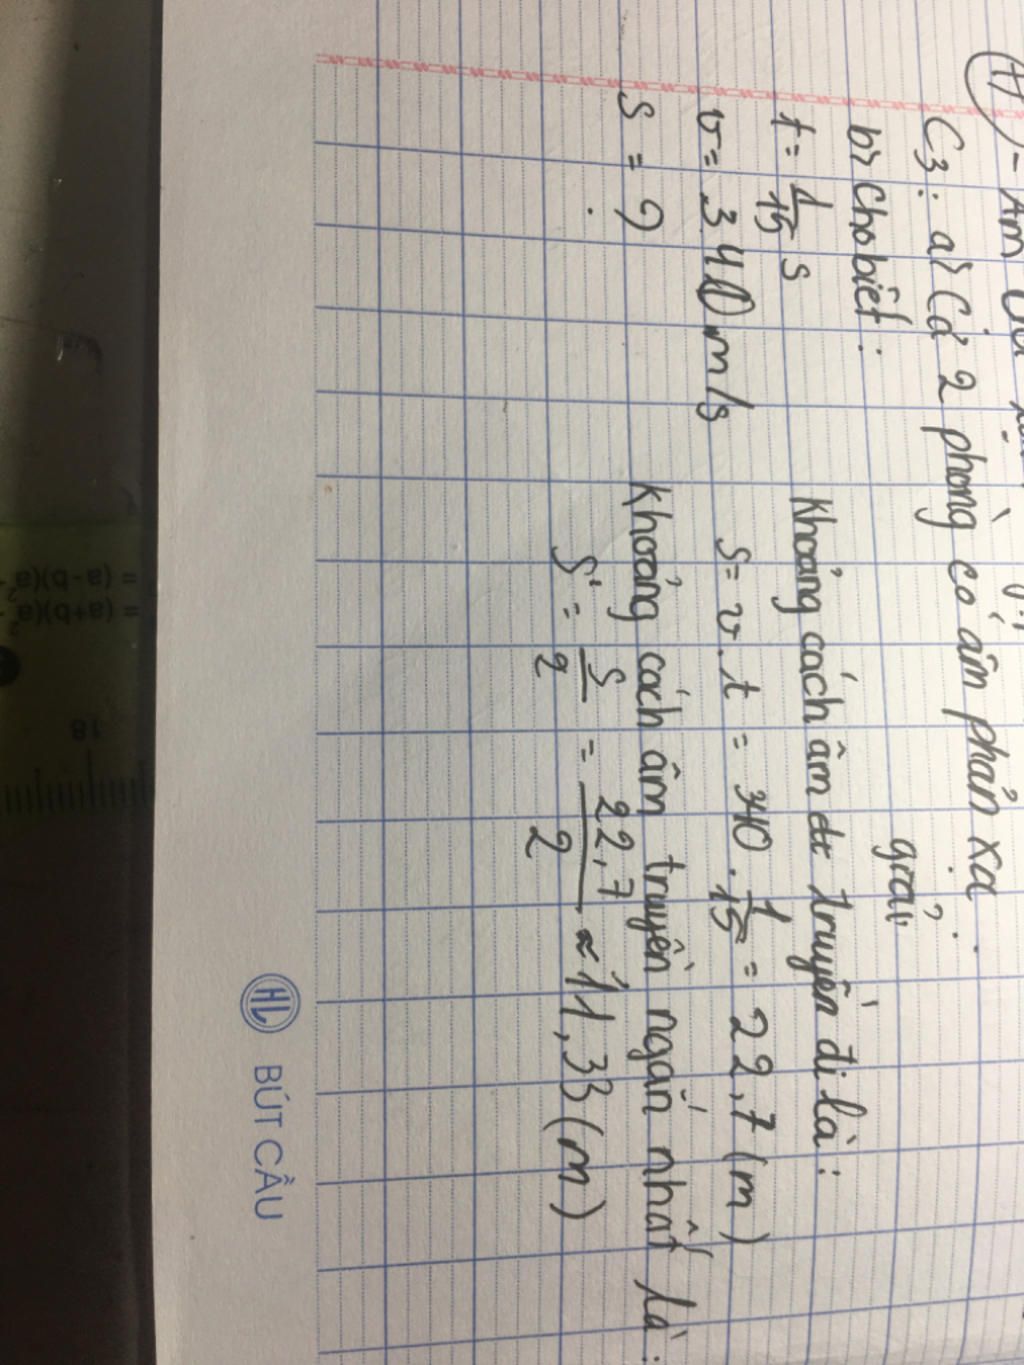 - Âm
C3: a) Cả 2 phòng có âm phản xạ
b) Cho biết:
giải
t = 1/15 s
Khoảng cách âm truyền đi là:
v = 340 m/s
S = v.t = 340 . 1/15 = 22,7 (m)
S = ?
Khoảng cách âm truyền ngắn nhất là:
S' = S/2 = 22,7/2 ≈ 11,33 (m)
HL BÚT CẦU
= (a-b)(a²
= (a+b)(a²
18